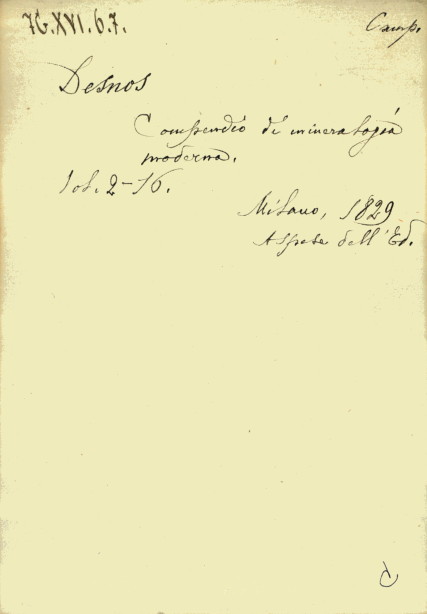 7G.XVI.6.7.
Camp.
Desnos
Compendio di mineralogia
moderna.
Vol. 2-16.
Milano, 1829
A spese dell' Ed.